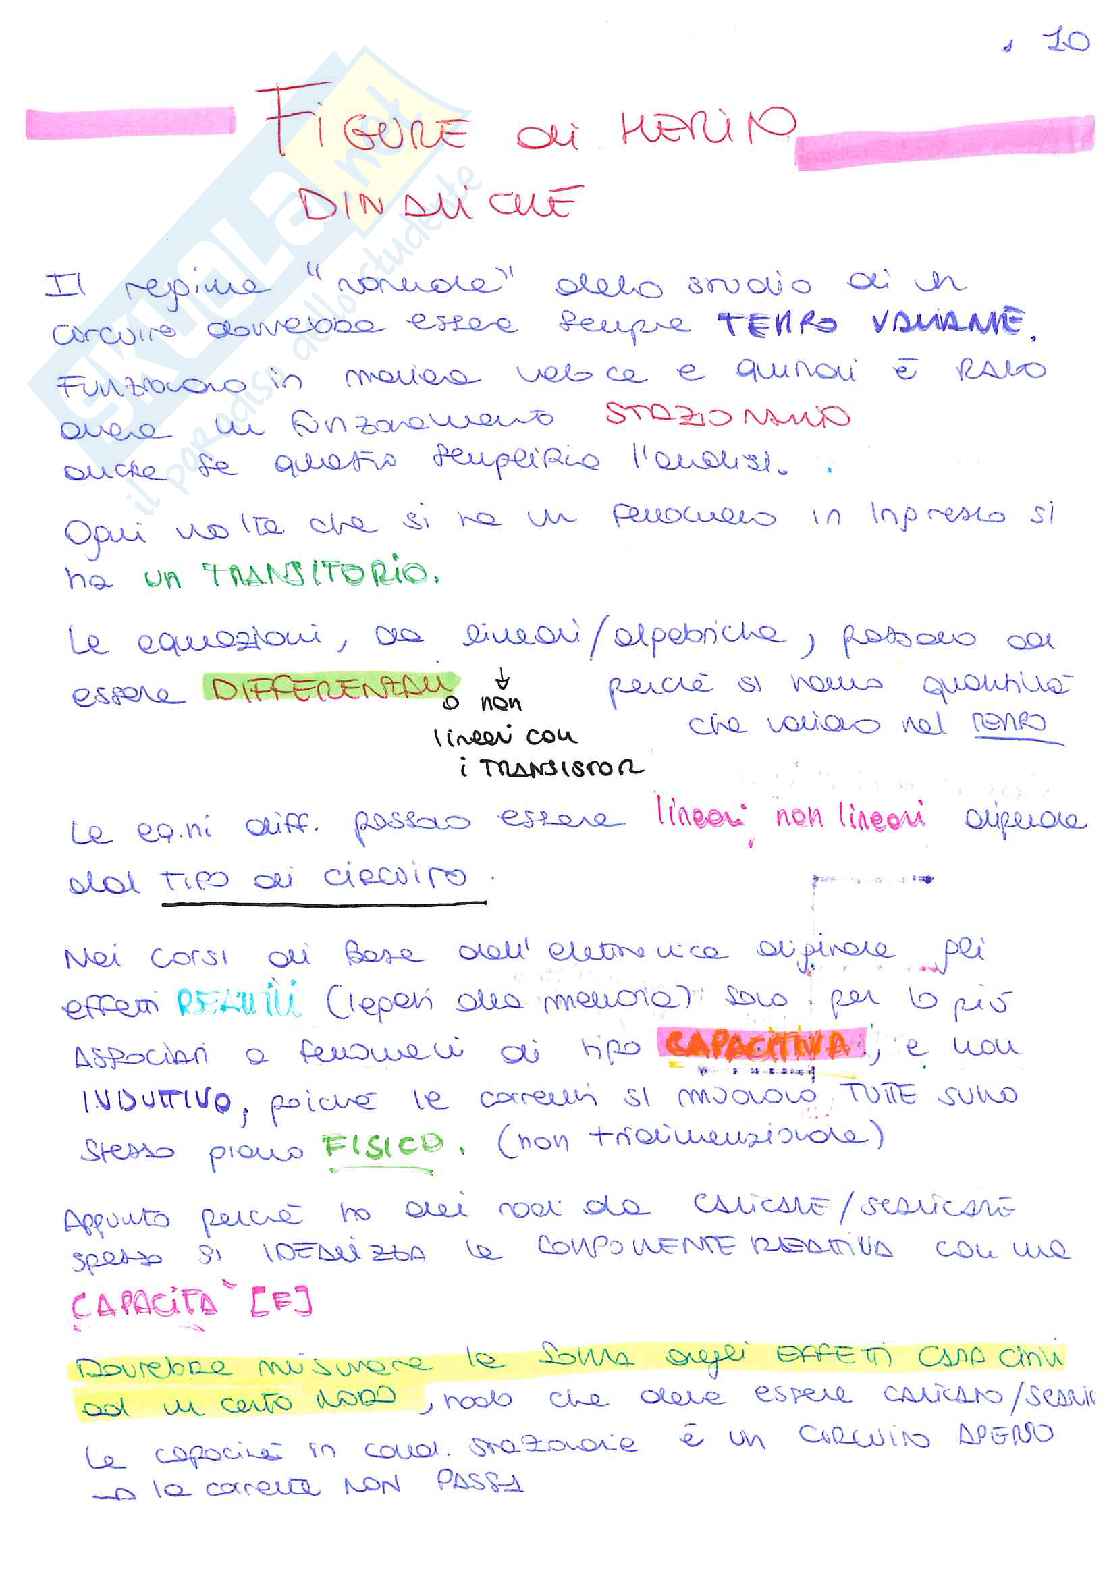 . 10
FiGURE di MERITO
DINAMICHE
Il regime "normale" dello studio di un
circuito dovrebbe essere sempre TEMPO VARIANTE.
Funzionano in maniera veloce e quindi è RARO
avere un funzionamento STAZIONARIO
anche se questo semplifica l'analisi.
Ogni volta che si ha un fenomeno in ingresso si
ha un TRANSITORIO.
Le equazioni, da lineari/algebriche, passano ad
essere DIFFERENZIALI perché si hanno quantità
o non
che variano nel TEMPO
lineari con
i TRANSISTOR
Le eq.ni diff. possono essere lineari, non lineari dipende
dal TIPO di CIRCUITO.
Nei corsi di Base dell'elettronica digitale gli
effetti REATTIVI (legati alla memoria) sono per lo più
ASSOCIATI a fenomeni di tipo CAPACITIVA, e non
INDUTTIVO, poiché le correnti si muovono TUTTE sullo
stesso piano FISICO. (non tridimenzionale)
Appunto perché ho dei nodi da CARICARE/SCARICARE
spesso si IDEALIZZA la COMPONENTE REATTIVA con una
CAPACITA' [F]
Dovrebbe misurare la somma degli EFFETTI CAPACITIVI
ad un certo NODO, nodo che deve essere CARICATO/
La capacità in cond. stazionarie è un CIRCUITO APERTO
→ la corrente NON PASSA
SKUOLA.net
il paradiso dello studente